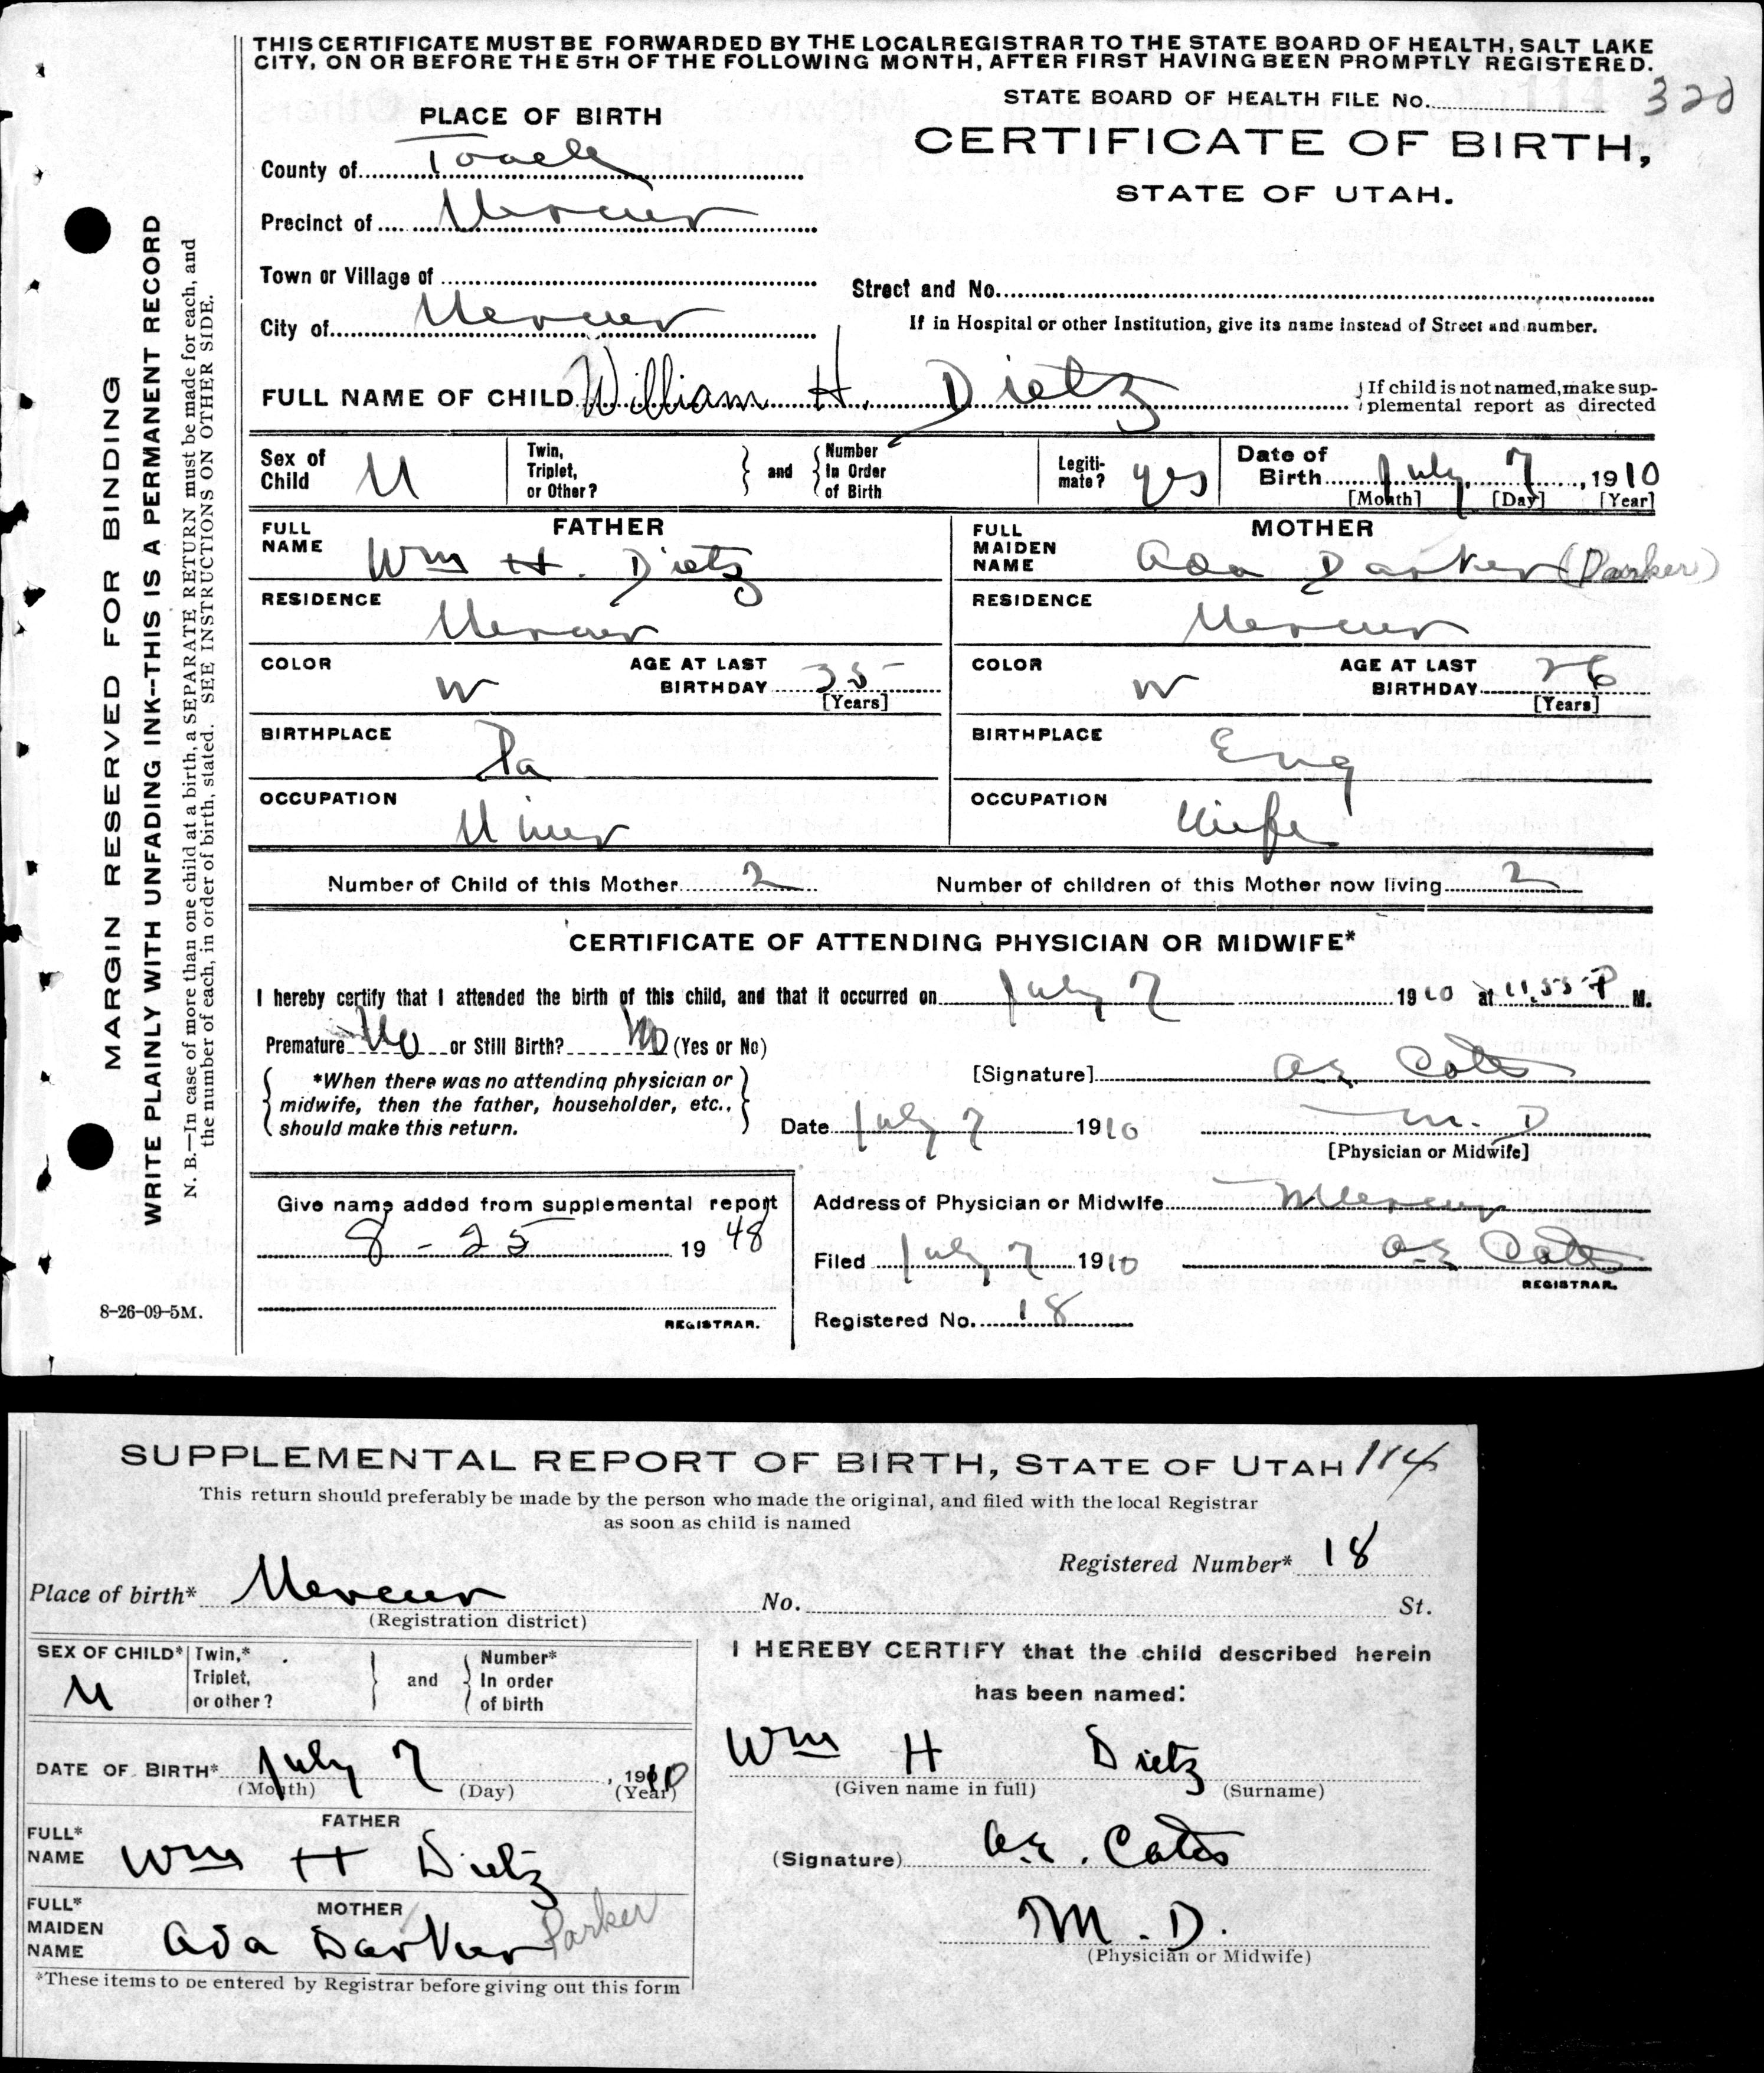 THIS CERTIFICATE MUST BE FORWARDED BY THE LOCAL REGISTRAR TO THE STATE BOARD OF HEALTH, SALT LAKE
CITY, ON OR BEFORE THE 5TH OF THE FOLLOWING MONTH, AFTER FIRST HAVING BEEN PROMPTLY REGISTERED.
STATE BOARD OF HEALTH FILE No. 320
PLACE OF BIRTH
CERTIFICATE OF BIRTH,
STATE OF UTAH.
County of Tooele
Precinct of Mercur
Town or Village of
Street and No.
City of Mercur
If in Hospital or other Institution, give its name instead of Street and number.
FULL NAME OF CHILD William H. Dietz
If child is not named, make sup-
plemental report as directed
Sex of Child M
Twin, Triplet, or Other?
and
Number In Order of Birth
Legiti-mate? yes
Date of Birth July 7, 1910
[Month] [Day] [Year]
FATHER
FULL NAME Wm H. Dietz
RESIDENCE Mercur
COLOR W
AGE AT LAST BIRTHDAY 35
[Years]
BIRTHPLACE Pa
OCCUPATION Miner
MOTHER
FULL MAIDEN NAME Ada Darker (Parker)
RESIDENCE Mercur
COLOR W
AGE AT LAST BIRTHDAY 26
[Years]
BIRTHPLACE Eng
OCCUPATION Wife
Number of Child of this Mother 2
Number of children of this Mother now living 2
CERTIFICATE OF ATTENDING PHYSICIAN OR MIDWIFE*
I hereby certify that I attended the birth of this child, and that it occurred on July 7 1910 at 11.55 P M.
Premature No or Still Birth? No (Yes or No)
*When there was no attending physician or
midwife, then the father, householder, etc.,
should make this return.
[Signature] A.E. Cates
Date July 7 1910
M. D
[Physician or Midwife]
Give name added from supplemental report
8 - 25 1948
REGISTRAR.
Address of Physician or Midwife Mercur
Filed July 7 1910 A.E. Cates
REGISTRAR.
Registered No. 18
8-26-09-5M.
MARGIN RESERVED FOR BINDING
WRITE PLAINLY WITH UNFADING INK--THIS IS A PERMANENT RECORD
N. B.—In case of more than one child at a birth, a SEPARATE RETURN must be made for each, and
the number of each, in order of birth, stated. SEE INSTRUCTIONS ON OTHER SIDE.
SUPPLEMENTAL REPORT OF BIRTH, STATE OF UTAH 114
This return should preferably be made by the person who made the original, and filed with the local Registrar
as soon as child is named
Registered Number* 18
Place of birth* Mercur No. St.
(Registration district)
SEX OF CHILD* M
Twin,* Triplet, or other?
and
Number* In order of birth
DATE OF BIRTH* July 7, 1910
(Month) (Day) (Year)
FATHER
FULL* NAME Wm H Dietz
MOTHER
FULL* MAIDEN NAME Ada Darker Parker
*These items to be entered by Registrar before giving out this form
I HEREBY CERTIFY that the child described herein
has been named:
Wm H Dietz
(Given name in full) (Surname)
(Signature) A.E. Cates
M. D.
(Physician or Midwife)